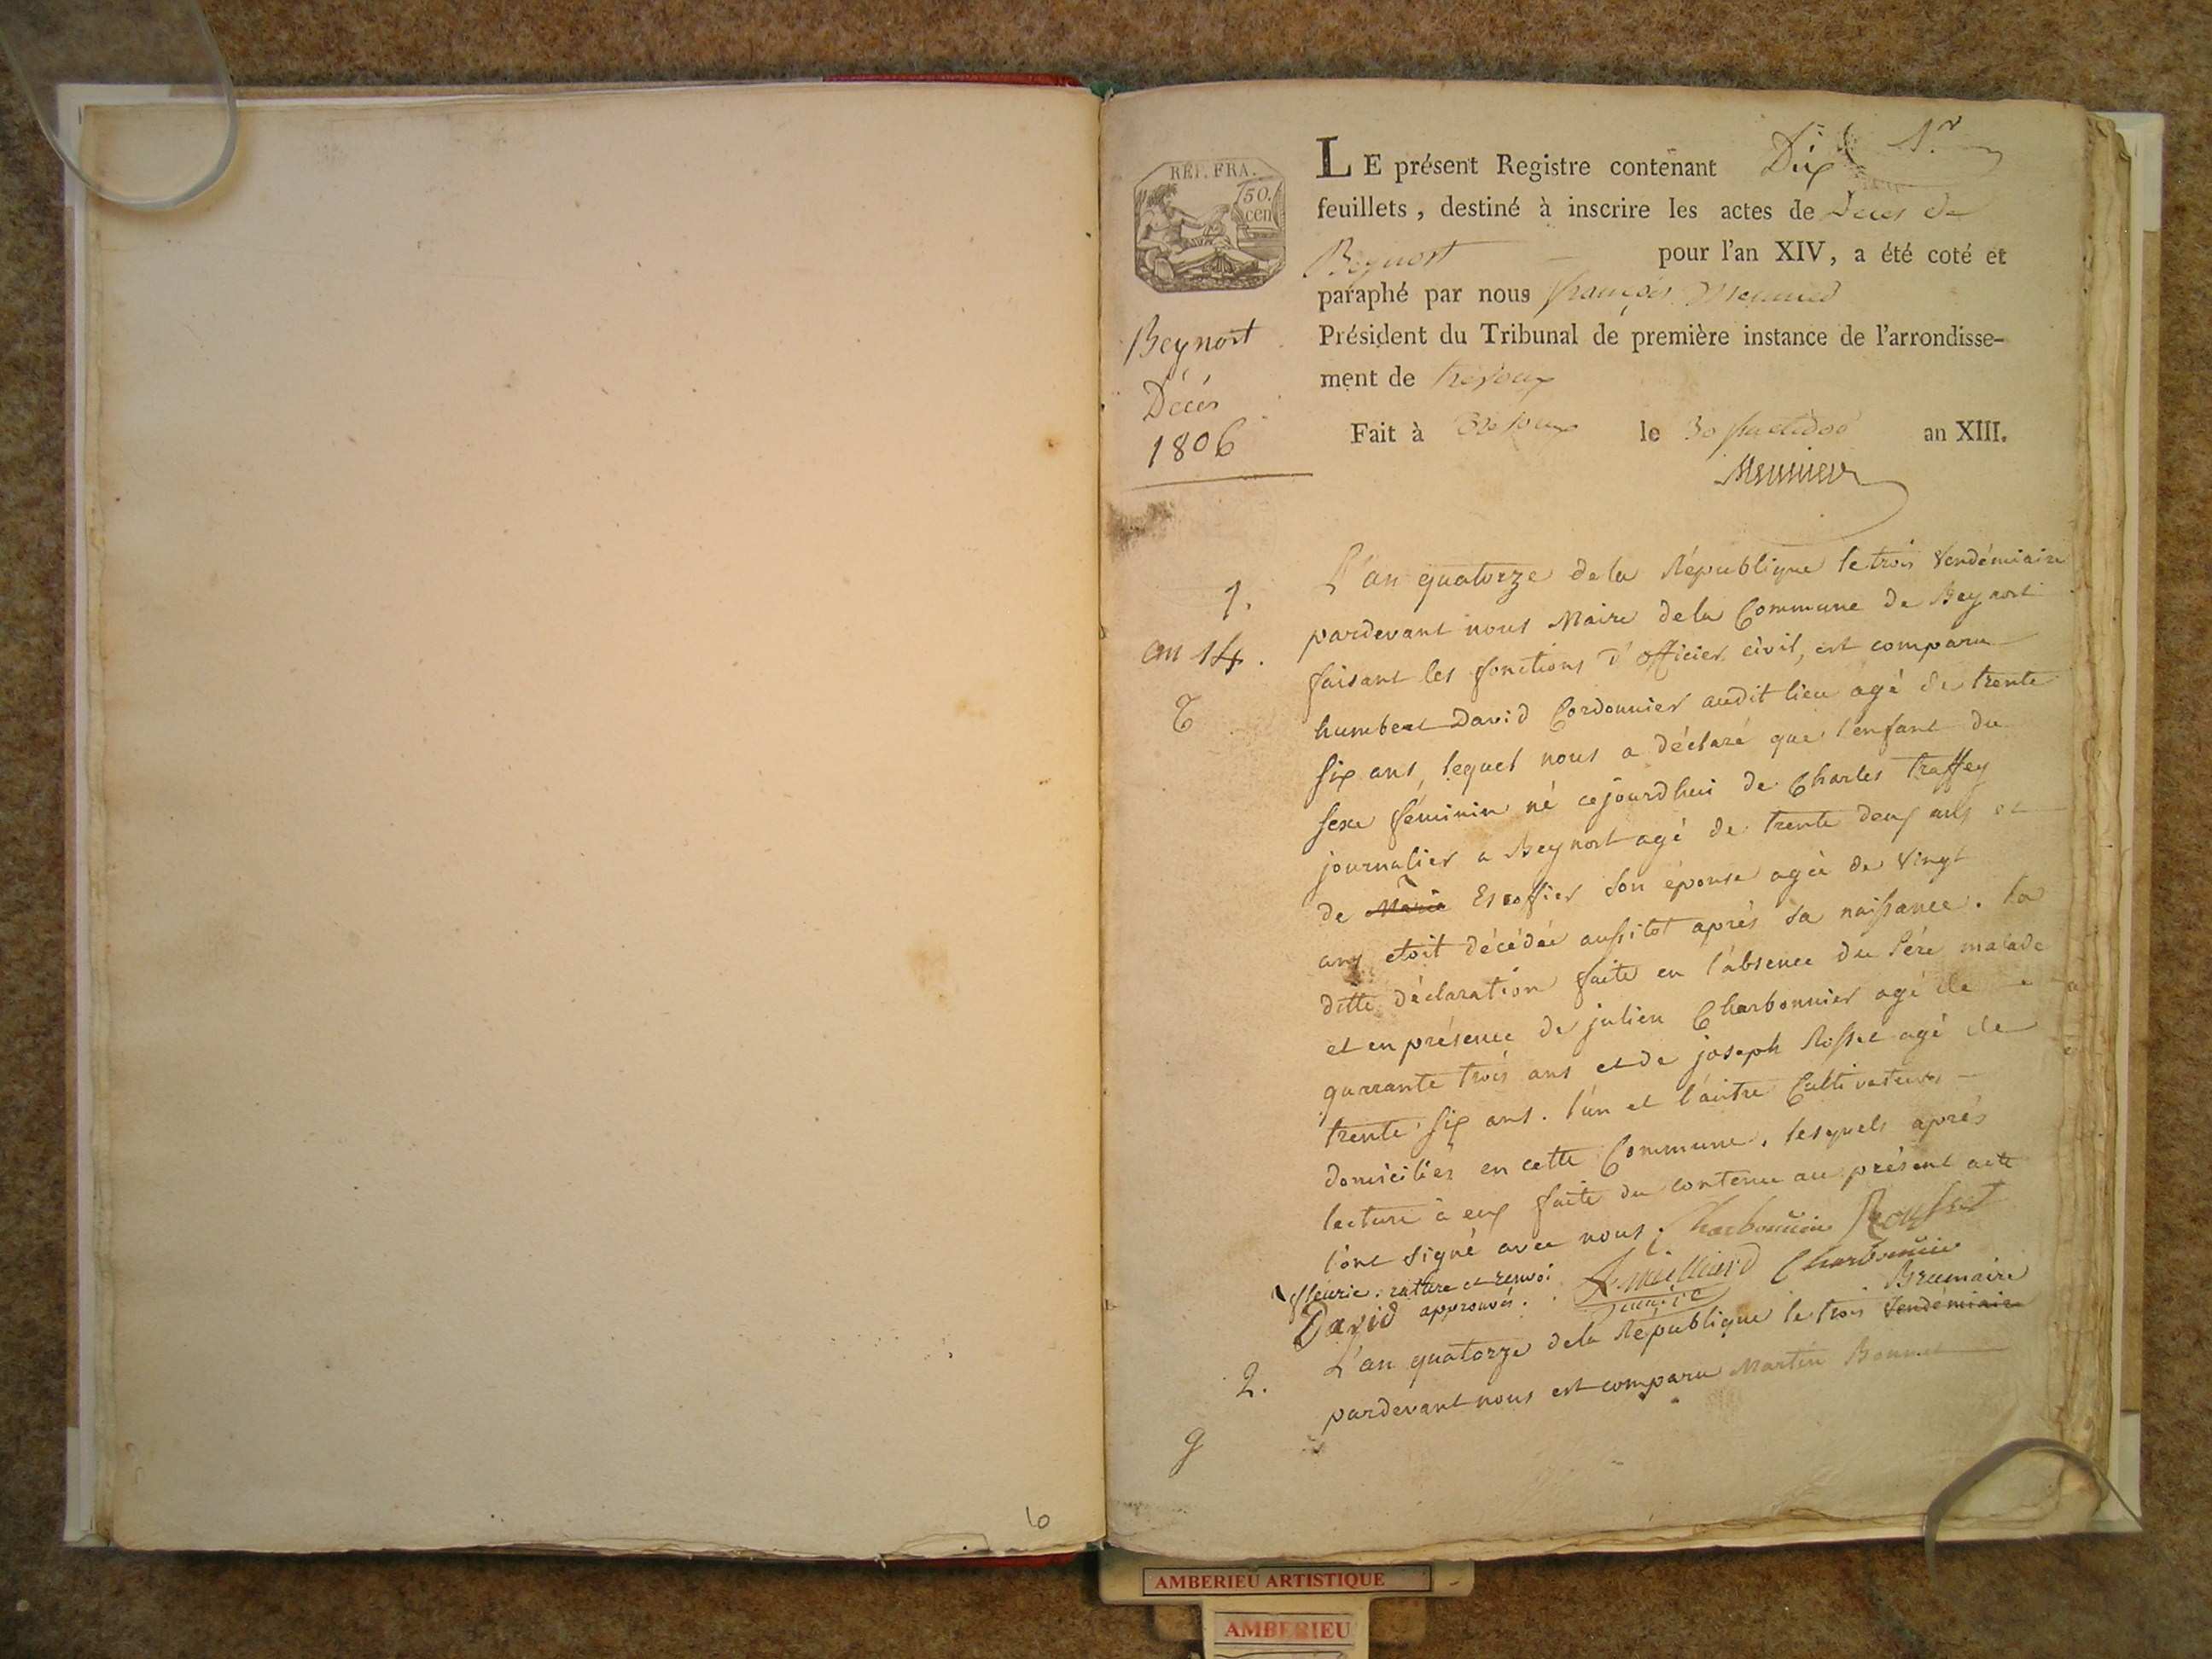 RÉP. FRA.
50.
cen
1.r
LE présent Registre contenant Dix
feuillets, destiné à inscrire les actes de Deces de
Beynost pour l'an XIV, a été coté et
paraphé par nous françois Meunier
Président du Tribunal de première instance de l'arrondisse-
ment de trévoux
Fait à Trevoux le 30 fructidor an XIII.
Meunier
Beynost
Décés
1806
1.
an 14.
L'an quatorze dela République le trois Vendémiaire
pardevant nous Maire dela Commune de Beynost
faisant les fonctions d'officier civil, est comparu
humbert David Cordonnier audit lieu agé de trente
six ans, lequel nous a déclaré que l'enfant du
sexe féminin né cejourdhui de Charles traffey
journalier a Beynost agé de trente deux ans et
de Marie Escoffier son épouse agée de vingt
ans etoit décédée aussitot après sa naissance. la
ditte déclaration faite en l'absence du Pére malade
et en présence de julien Charbonnier agé de
quarante trois ans et de joseph Rosset agé de
trente six ans. l'un et l'autre Cultivateurs
domiciliés en cette Commune, lesquels aprés
lecture à eux faite du contenu au présent acte
l'ont signé avec nous. Charbonnier Rousset
fleurie. rature et renvoi
David approuvés. Charbonnier
maire
2.
L'an quatorze dela République le trois Vendémiaire Brumaire
pardevant nous est comparu Martin Bonnet
g
6
AMBERIEU ARTISTIQUE
AMBERIEU